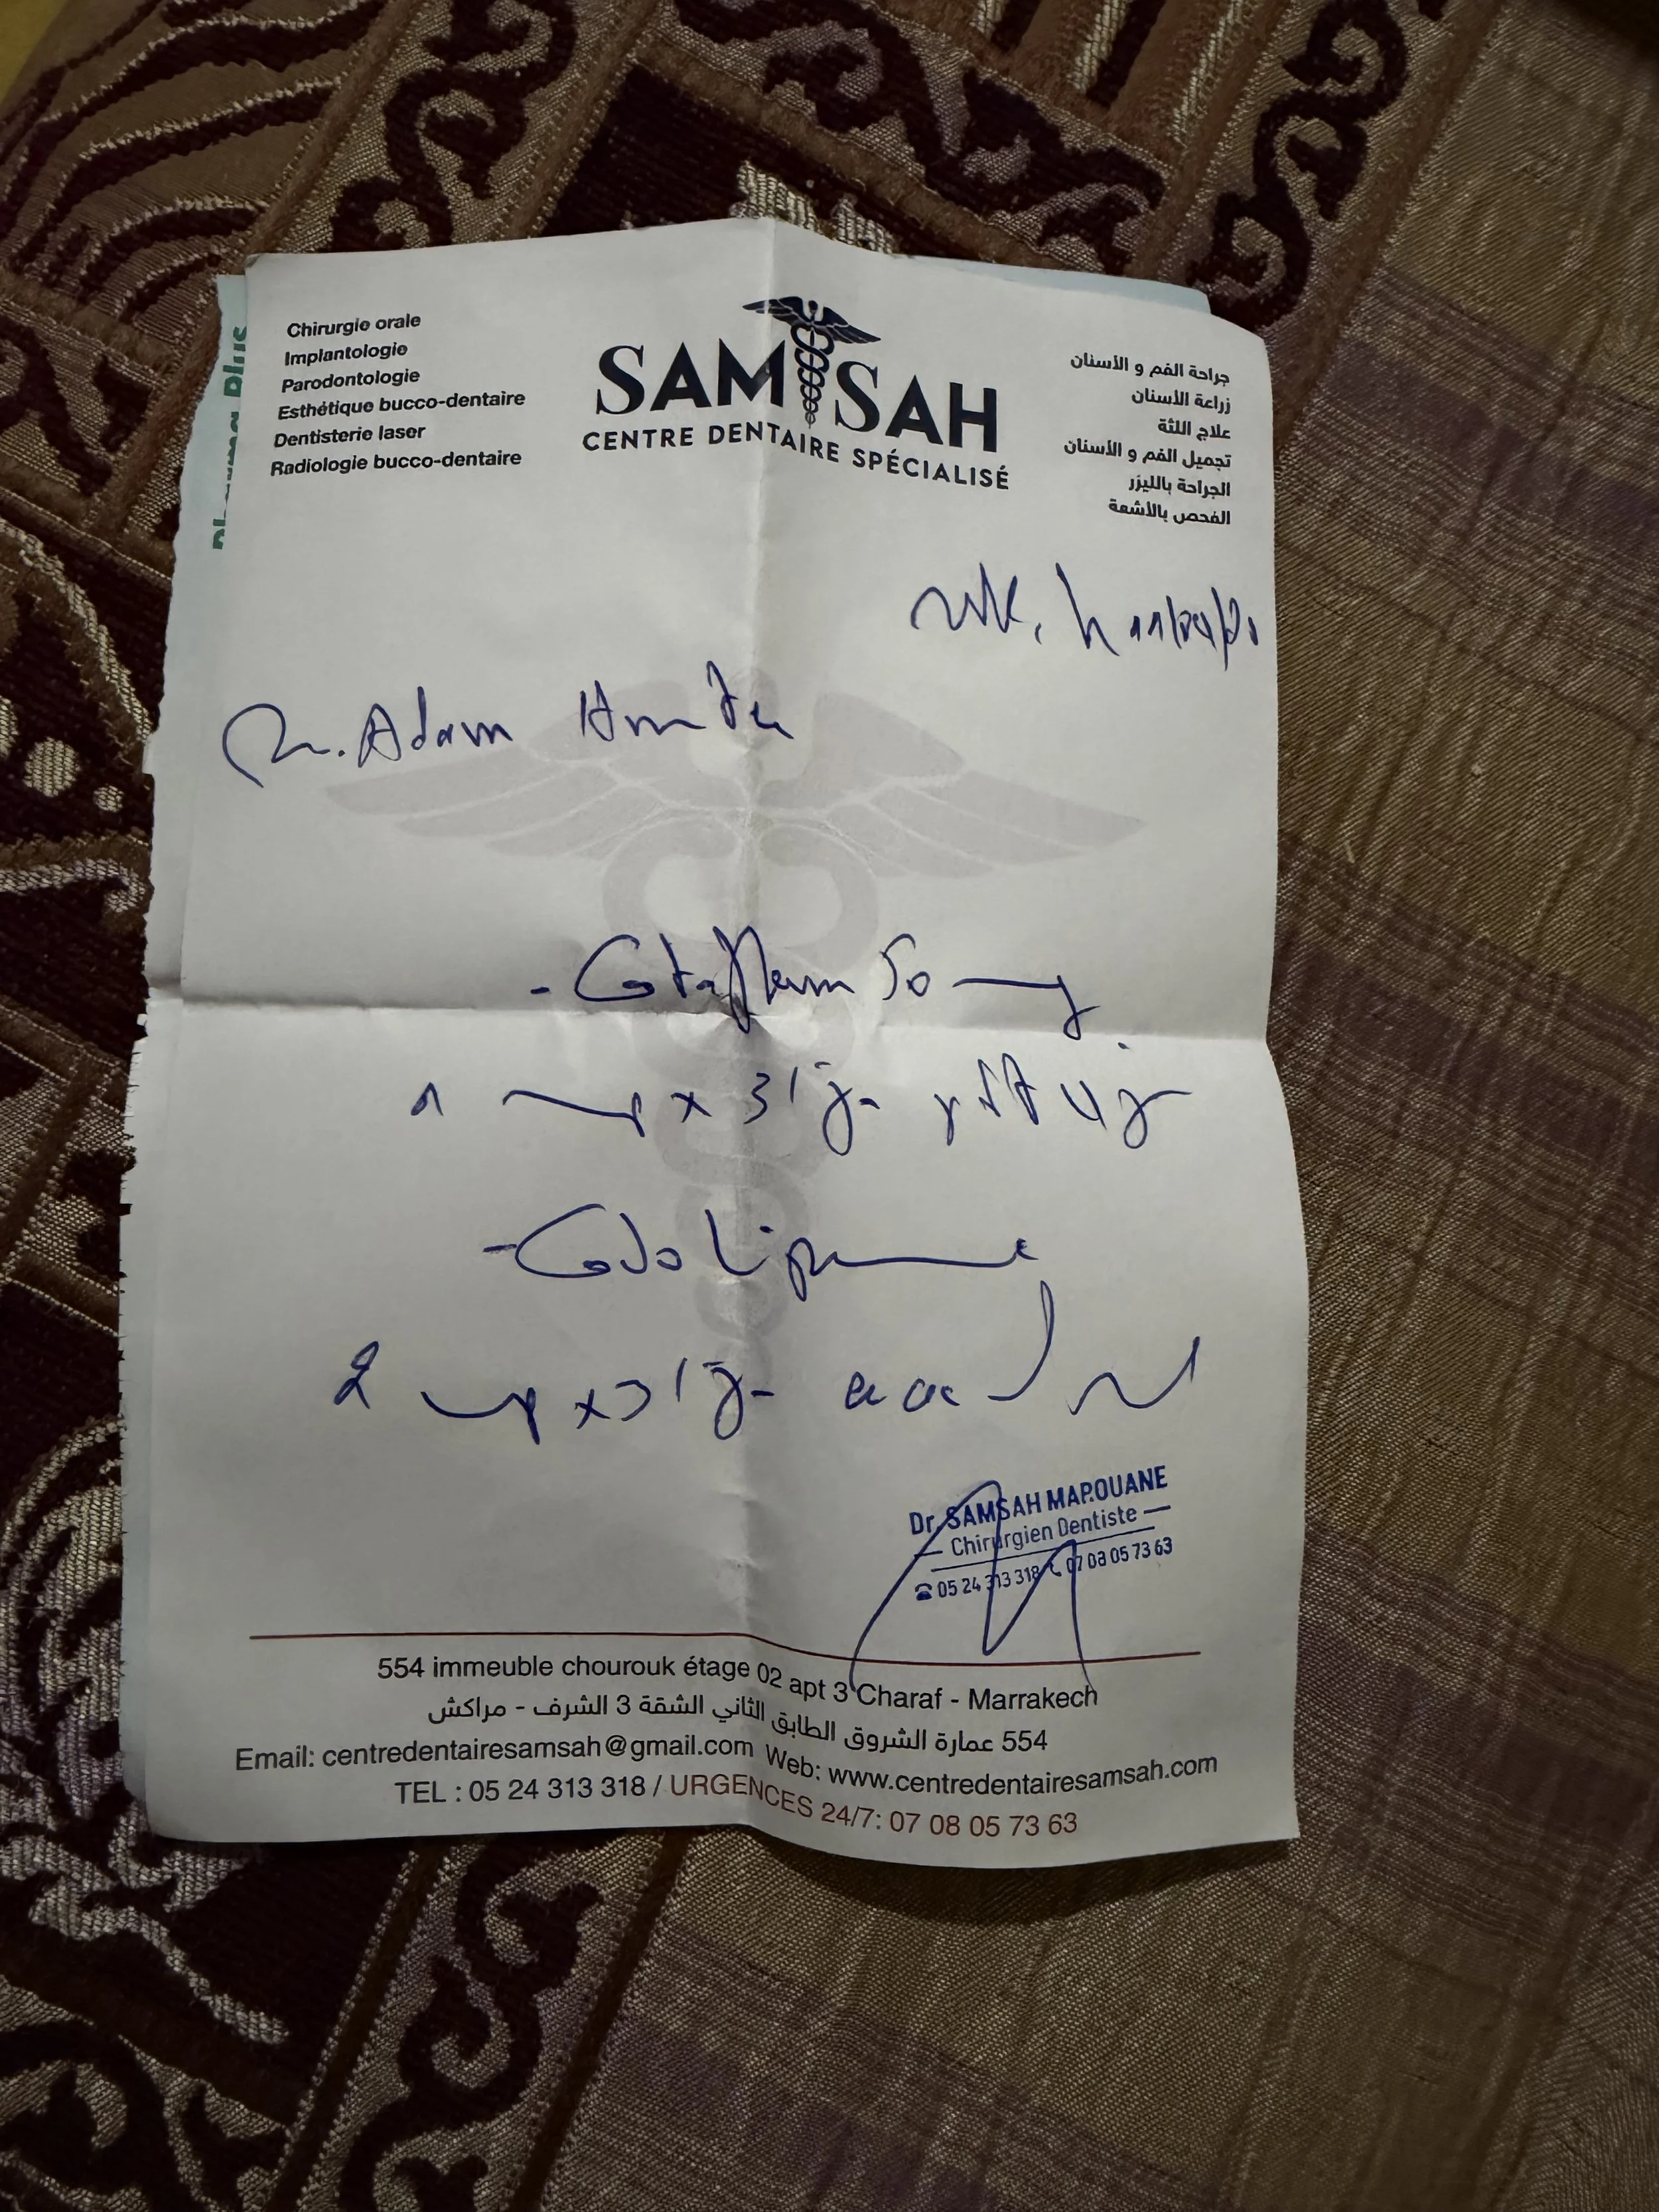 Pharma Plus
Chirurgie orale
Implantologie
Parodontologie
Esthétique bucco-dentaire
Dentisterie laser
Radiologie bucco-dentaire
SAMSAH
CENTRE DENTAIRE SPÉCIALISÉ
جراحة الفم و الأسنان
زراعة الأسنان
علاج اللثة
تجميل الفم و الأسنان
الجراحة بالليزر
الفحص بالأشعة
Adam
- Cataflam 50 mg
x 3 / j
- Codoliprane
2 x 3 / j
Dr. SAMSAH MAROUANE
Chirurgien Dentiste
05 24 313 318 07 08 05 73 63
554 immeuble chourouk étage 02 apt 3 Charaf - Marrakech
554 عمارة الشروق الطابق الثاني الشقة 3 الشرف - مراكش
Email: centredentairesamsah@gmail.com Web: www.centredentairesamsah.com
TEL : 05 24 313 318 / URGENCES 24/7: 07 08 05 73 63